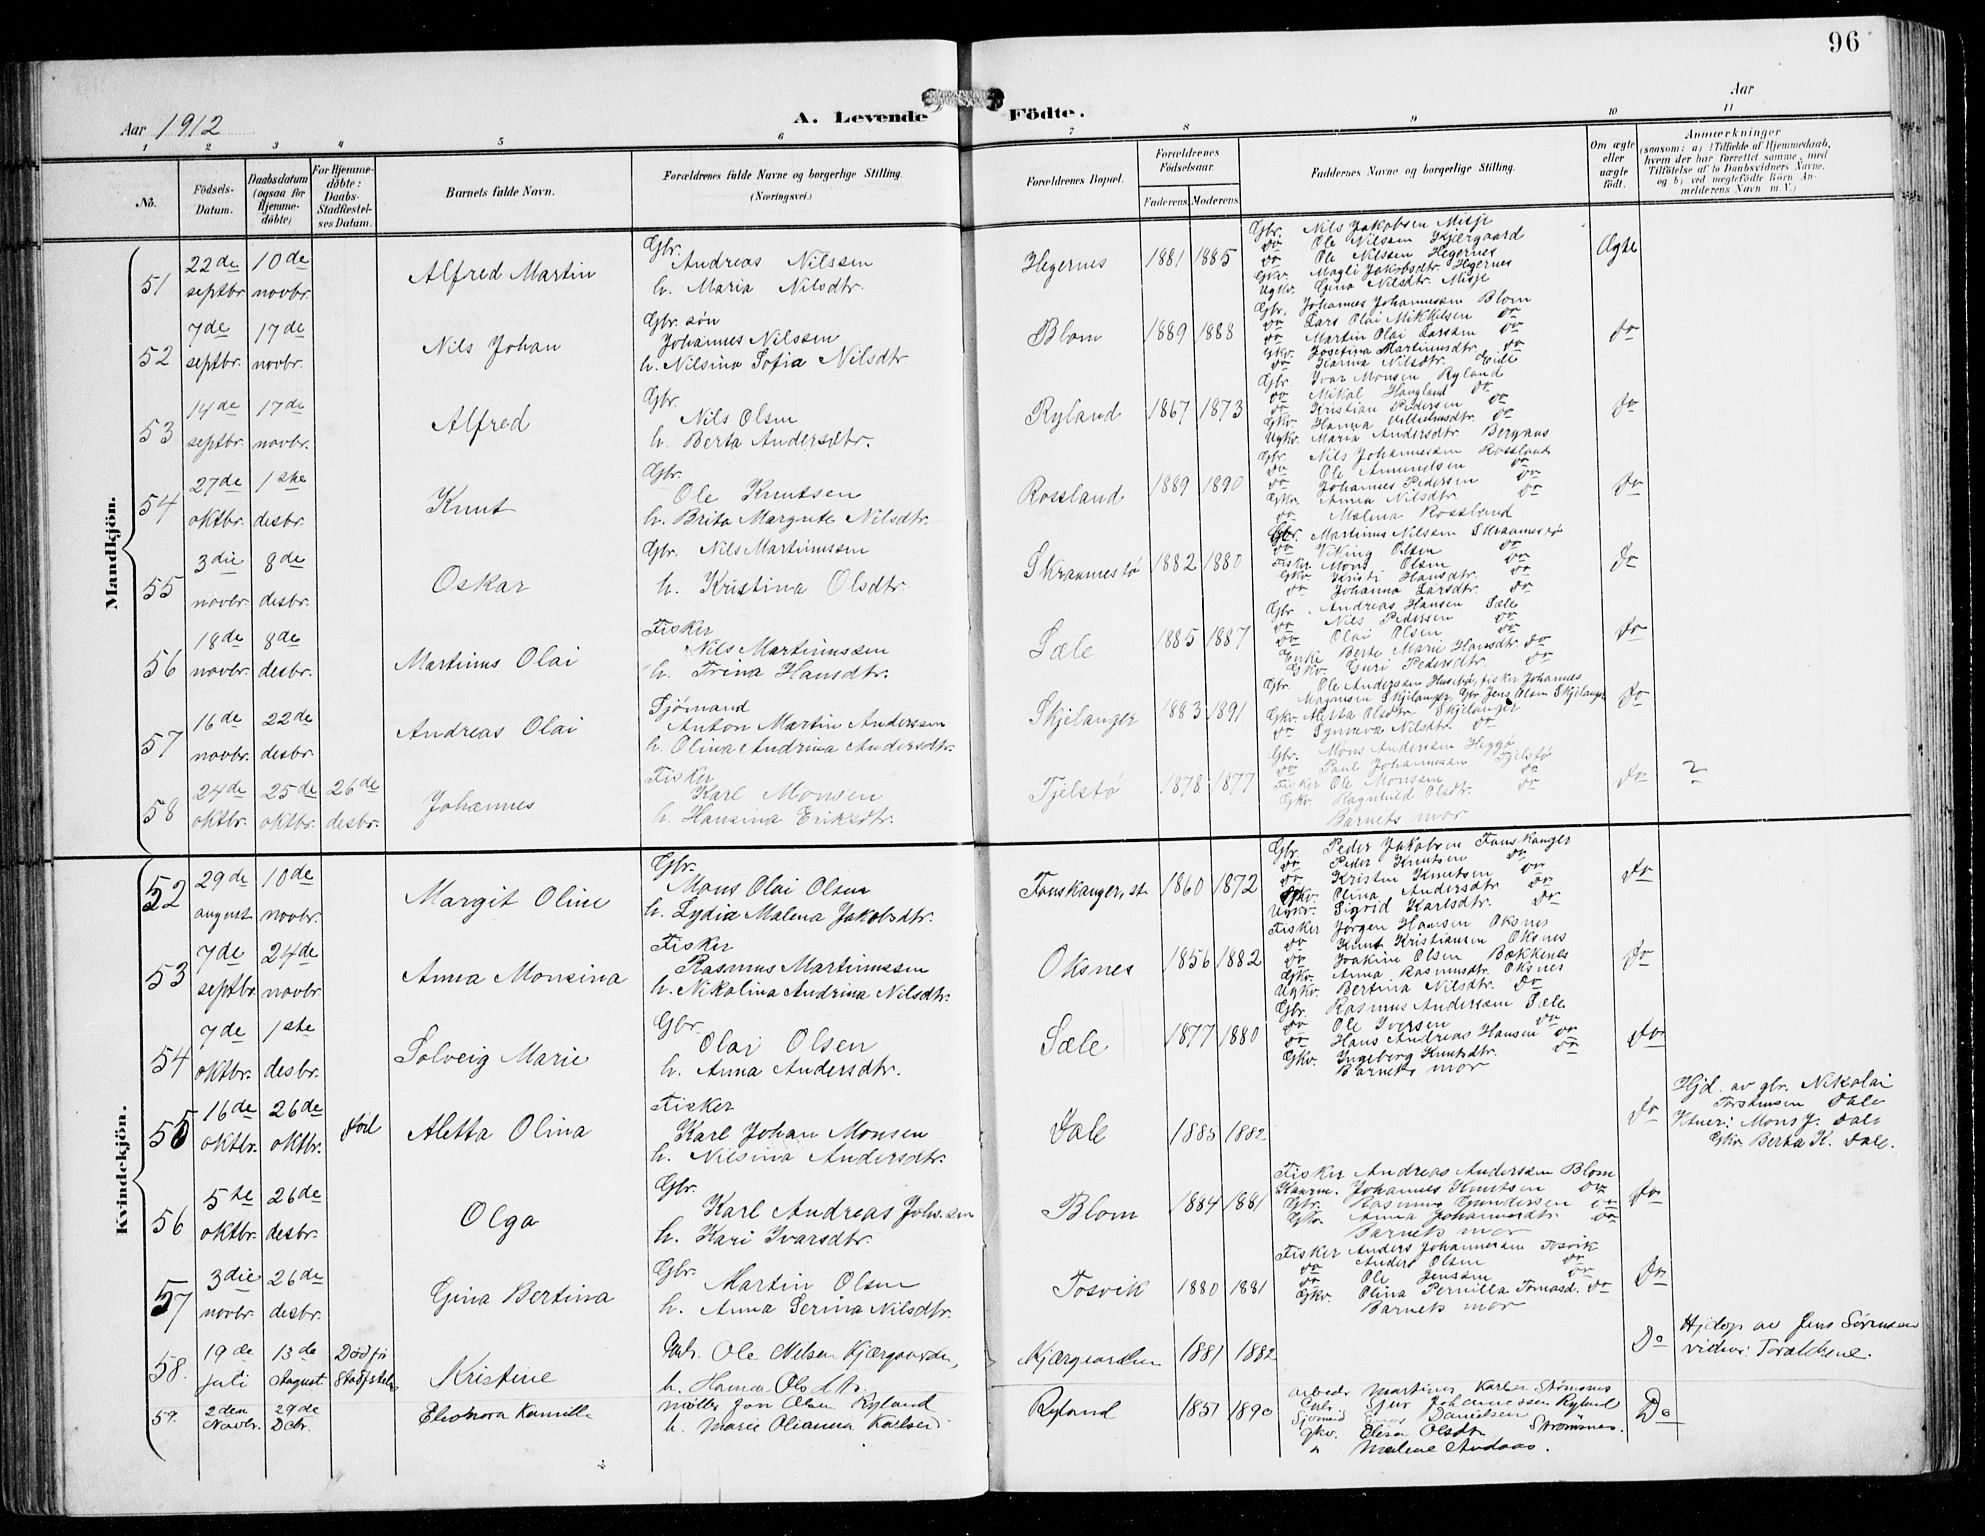 96
Aar 1912
A. Levende Födte.
Aar
1 2 3 4 5 6 7 8 9 10 11
Nö.
Födsels-Datum.
Daabsdatum (ogsaa for Hjemme-döbte)
For Hjemme-döbte: Daabs-Stadfæstel-ses Datum.
Barnets fulde Navn.
Forældrenes fulde Navne og borgerlige Stilling. (Næringsvei.)
Forældrenes Bopæl.
Forældrenes Födselsaar.
Faderens. Moderens.
Faddernes Navne og borgerlige Stilling.
Om ægte eller uægte födt.
Anmærkninger
(saasom: a) i Tilfælde af Hjemmedaab, hvem der har forrettet samme, med Tilföielse af to Daabsvidners Navne, og b) ved uægtefödte Börn An-melderens Navn m. V.)
Mandkjön.
51 22de septbr. 10de novbr. Alfred Martin
Gbr. Andreas Nilssen
h. Maria Nilsdtr.
Hegernes 1881 1885
Gbr. Nils Jakobsen Misje
do Ole Nilssen Kjærgaard
do Ole Nilssen Hegernes
Gkv. Magli Jakobsdtr. Hegernes
Ugkv. Gina Nilsdtr. Misje
Ægte
52 7de septbr. 17de novbr. Nils Johan
Gbr. søn
Johannes Nilssen
h. Nilsina Sofia Nilsdtr.
Blom 1889 1888
Gbr. Johannes Johannessen Blom
do Lars Olai Mikkelsen do
do Martin Olai Larssen do
Gkv. Josefina Martinusdtr. do
do Hanna Nilsdtr. Eide
do
53 14de septbr. 17de novbr. Alfred
Gbr. Nils Olsen
h. Berta Andersdtr.
Ryland 1867 1873
Gbr. Ivar Monsen Ryland
do Mikal Haugland do
do Kristian Pedersen do
Gkv. Hanna Vilhelmsdtr. do
Ugkv. Maria Andersdtr. Bergans
do
54 27de oktbr. 1ste desbr. Knut
Gbr. Ole Knutsen
h. Brita Margrete Nilsdtr.
Rossland 1889 1890
Gbr. Nils Johannessen Rossland
do Ole Amundsen do
do Johannes Pedersen do
Gkv. Anna Nilsdtr. do
do Malena Rossland
do
55 3die novbr. 8de desbr. Oskar
Gbr. Nils Martinussen
h. Kristina Olsdtr.
Skraamestø 1882 1880
Gbr. Martinus Nilssen Skraamestø
do Viking Olsen do
Fisker Mons Olsen do
Gkv. Kristi Hansdtr. do
do Johanna Larsdtr. do
do
56 18de novbr. 8de desbr. Martinus Olai
Fisker
Nils Martinussen
h. Trina Hansdtr.
Sæle 1885 1887
Gbr. Andreas Hansen Sæle
do Nils Pedersen do
do Olai Olsen do
Enke Berte Mari Hansdtr. do
Gkv. Guri Pedersdtr. do
do
57 16de novbr. 22de desbr. Andreas Olai
Sjømand
Anton Martin Anderssen
h. Olina Andrina Andersdtr.
Skjelanger 1883 1891
Gbr. Ole Anderssen Husebø, fisker Johannes
Magnesen Skjelanger, Gbr. Jens Olsen Skjelanger
Gkv. Marta Olsdtr. Skjelanger
do Synneva Nilsdtr. do
do
58 24de oktbr. 25de oktbr. 26de desbr. Johannes
Fisker
Karl Monsen
h. Hansina Eriksdtr.
Tjelstø 1878 1877
Gbr. Mons Anderssen Heggø
do Paul Johannessen Tjelstø
Fisker Ole Monssen do
Gkv. Ragnhild Olsdtr. do
Barnets mor
do
Kvindekjön.
52 29de august 10de novbr. Margit Oline
Gbr.
Mons Olai Olsen
h. Lydia Malena Jakobsdtr.
Fonskanger, st. 1860 1872
Gbr. Peder Jakobsen Fonskanger
do Peder Knutsen do
do Kristen Knutsen do
Gkv. Olina Andersdtr. do
Ugkv. Sigrid Karlsdtr. do
do
53 7de septbr. 24de novbr. Anna Monsina
Fisker
Rasmus Martinussen
h. Nikolina Andrina Nilsdtr.
Oksnes 1856 1882
Fisker Jørgen Hansen Oksnes
do Knut Kristiansen Oksnes
do Joakim Olsen Bækkenes
Gkv. Anna Rasmusdtr. Oksnes
Ugkv. Bertina Nilsdtr. do
do
54 7de oktbr. 1ste desbr. Solveig Marie
Gbr.
Olai Olsen
h. Anna Andersdtr.
Sæle 1877 1880
Gbr. Rasmus Anderssen Sæle
do Ole Iversen do
do Hans Andreas Hansen do
Gkv. Ingeborg Knutsdtr. do
Barnets mor
do
55 16de oktbr. 26de oktbr. død Aletta Olina
Fisker
Karl Johan Monsen
h. Nilsina Andersdtr.
Dale 1885 1882
do
Hjd. av gbr. Nikolai
Torstensen Dale
Vtner: Mons J. Dale
Gkv. Berta K. Dale.
56 5te oktbr. 26de desbr. Olga
Gbr.
Karl Andreas Johs.sen
h. Kari Ivarsdtr.
Blom 1884 1881
Fisker Andreas Anderssen Blom
Kaarm. Johannes Knutsen do
Gbr. Rasmus Gundersen do
Gkv. Anna Johannesdtr. do
Barnets mor
do
57 3die novbr. 26de desbr. Gina Bertina
Gbr.
Martin Olsen
h. Anna Serina Nilsdtr.
Tosvik 1880 1881
Fisker Anders Johannessen Tosvik
do Anders Olsen do
do Ole Jenssen do
Gkv. Olina Pernilla Tomasd. do
Barnets mor
do
58. 19de juli 13de August Død før Stadfæstelse Kristine
Ole Nilsen Kjærgaarden,
h. Hanna Olsdtr.
Kjærgaarden 1881 1882
Do
Hjdøp av Jens Sørensen
vidner: Forældrene.
59. 2den Novbr. 29de Dcbr. Eleonora Kamilla
møller Jon Olsen Ryland
h. Marie Olianna Karlsen
Ryland 1851 1890
arbeder Martinus Karlsen Strømsnes
Gbr. Sjur Johannessen Ryland
Sjømand Danielsen
gkv. Elisa Olsdtr. Strømsnes
" Malene Andaas.
Do